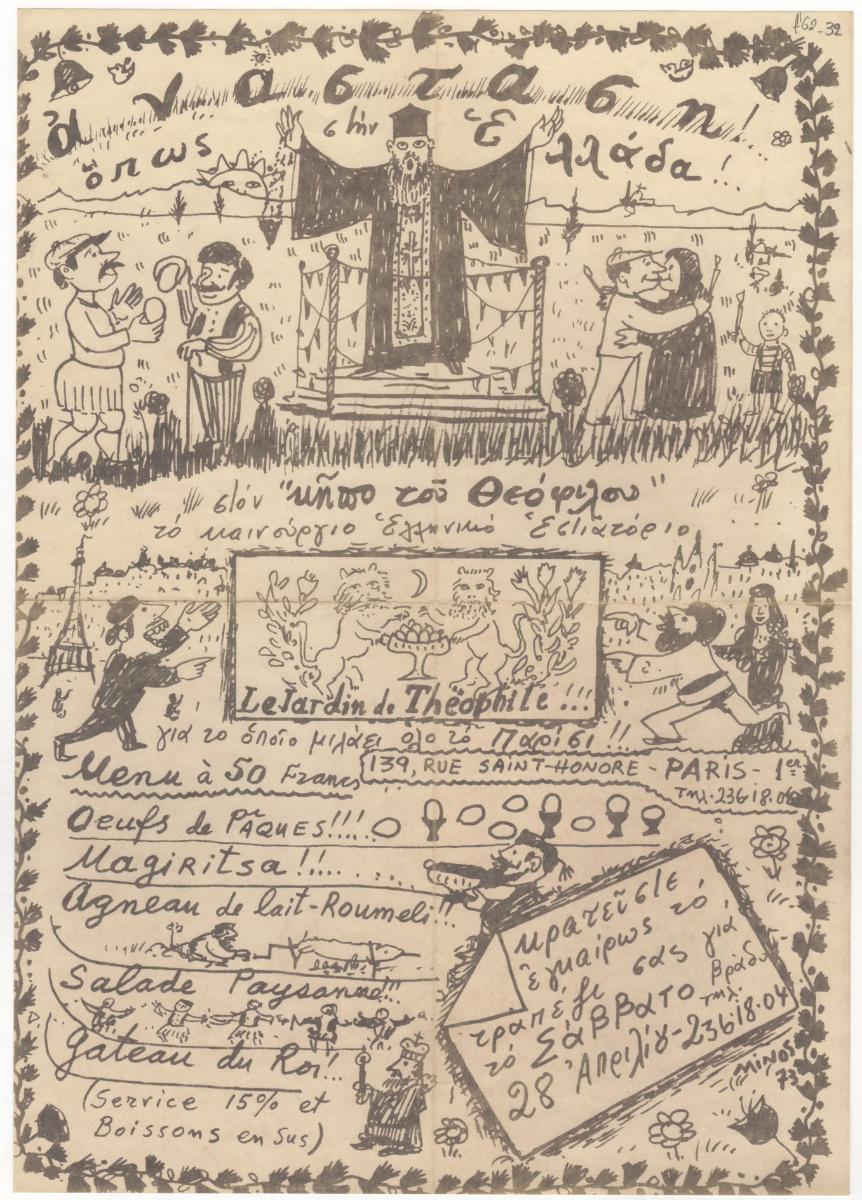 f62-32
ἀνάσταση!
ὅπως στὴν Ἑλλάδα!..
στὸν "κῆπο τοῦ Θεόφιλου"
τὸ καινούργιο Ἑλληνικὸ Ἑστιατόριο
Le Jardin de Théophile!!!
για το ὁποῖο μιλάει ὅλο τὸ Παρίσι!!
139, RUE SAINT-HONORE - PARIS - 1er
Τηλ. 236 18.04
Menu à 50 Francs
Oeufs de PÂQUES!!!!
MagiRitsa!!.....
Agneau de lait-Roumeli!!
Salade Paysanne!!!
Gateau du Roi!..
(Service 15% et
Boissons en Sus)
κρατεῖστε
ἐγκαίρως τὸ
τραπέζι σας γιὰ
τὸ Σάββατο βράδυ
28 Ἀπριλίου - Τηλ. 236 18.04
MINOS
73